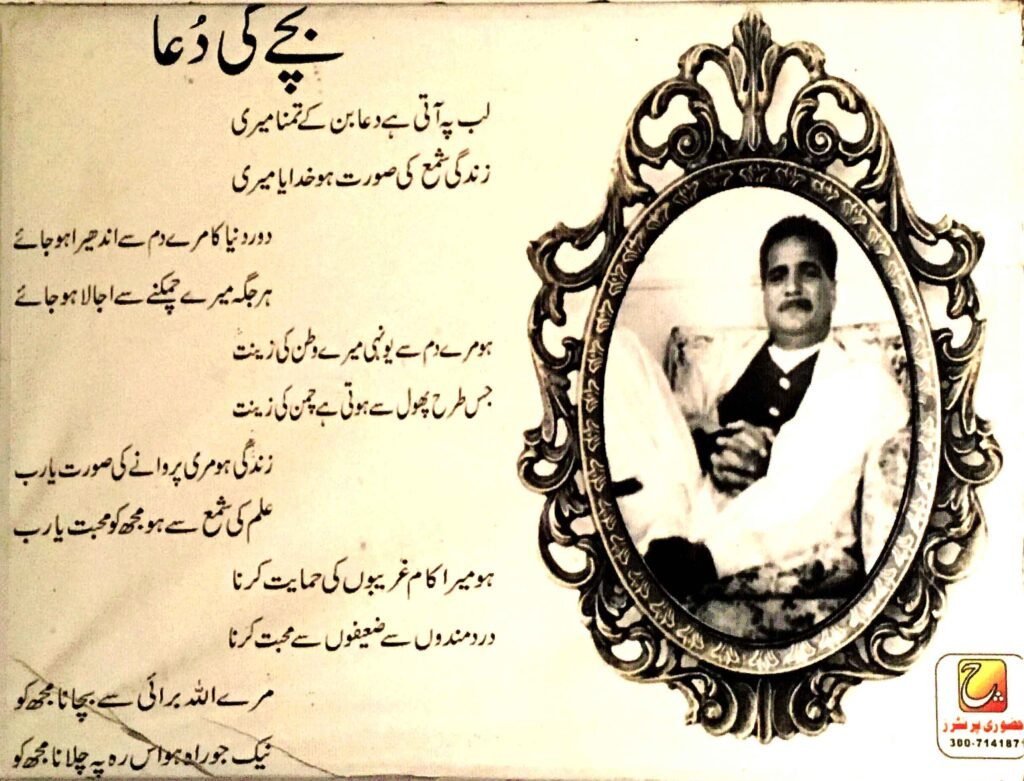 بچے کی دُعا
لب پہ آتی ہے دعا بن کے تمنا میری
زندگی شمع کی صورت ہو خدایا میری
دور دنیا کا مرے دم سے اندھیرا ہو جائے
ہر جگہ میرے چمکنے سے اجالا ہو جائے
ہو مرے دم سے یونہی میرے وطن کی زینت
جس طرح پھول سے ہوتی ہے چمن کی زینت
زندگی ہو مری پروانے کی صورت یا رب
علم کی شمع سے ہو مجھ کو محبت یا رب
ہو میرا کام غریبوں کی حمایت کرنا
دردمندوں سے ضعیفوں سے محبت کرنا
مرے اللہ برائی سے بچانا مجھ کو
نیک جو راہ ہو اس رہ پہ چلانا مجھ کو
حضوری پرنٹرز
300-7141871